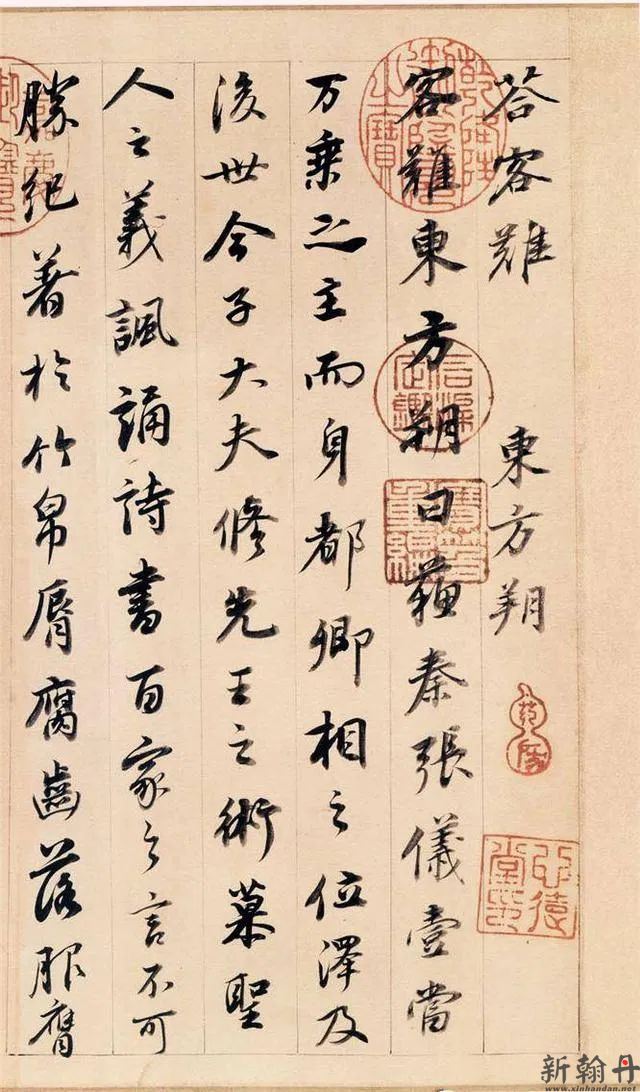 荅客難 東方朔
客難東方朔曰蘓秦張儀壹當
万乗之主而身都卿相之位澤及
後世今子大夫脩先王之術慕聖
人之義諷誦詩書百家之言不可
勝紀著於竹帛脣腐齒落服膺
新翰丹
www.xinhandan.net